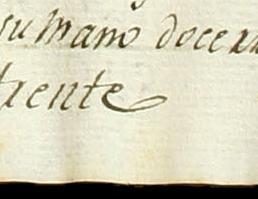 su mano doce
trente